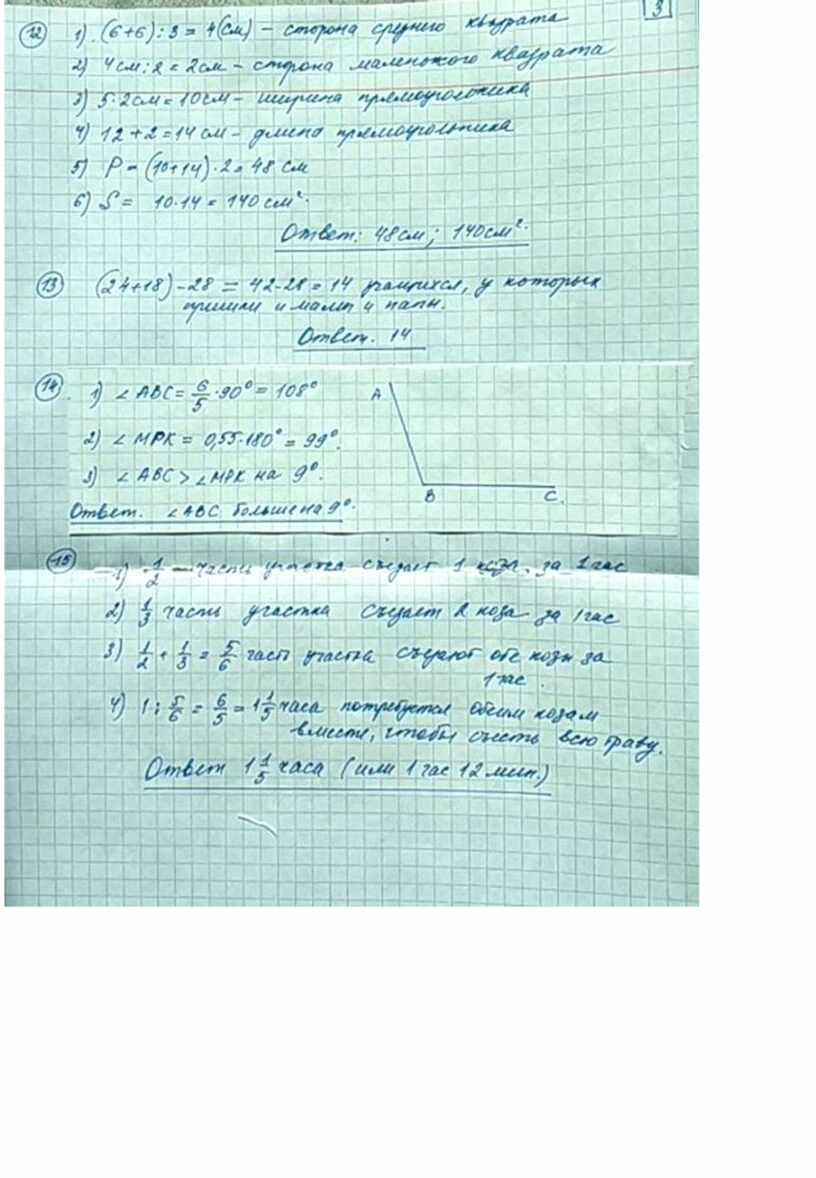 3
12 1) (6+6):3 = 4(см) – сторона среднего квадрата
2) 4см:2 = 2см – сторона маленького квадрата
3) 5·2см = 10см – ширина прямоугольника
4) 12+2=14см – длина прямоугольника
5) P = (10+14)·2 = 48 см
6) S = 10·14 = 140 см².
Ответ: 48см; 140см².
13 (24+18)-28 = 42-28 = 14 учащихся, у которых
пришли и мамы и папы.
Ответ. 14
14. 1) ∠ABC = 6/5 · 90° = 108°
2) ∠MPK = 0,55·180° = 99°.
3) ∠ABC > ∠MPK на 9°.
Ответ. ∠ABC больше на 9°.
A
B
C.
15 1) 1/2 – часть участка съедает 1 коза за 1 час
2) 1/3 часть участка съедает 2 коза за 1 час
3) 1/2 + 1/3 = 5/6 часть участка съедают обе козы за
1 час.
4) 1 : 5/6 = 6/5 = 1 1/5 часа потребуется обеим козам
вместе, чтобы съесть всю траву.
Ответ 1 1/5 часа (или 1 час 12 мин.)